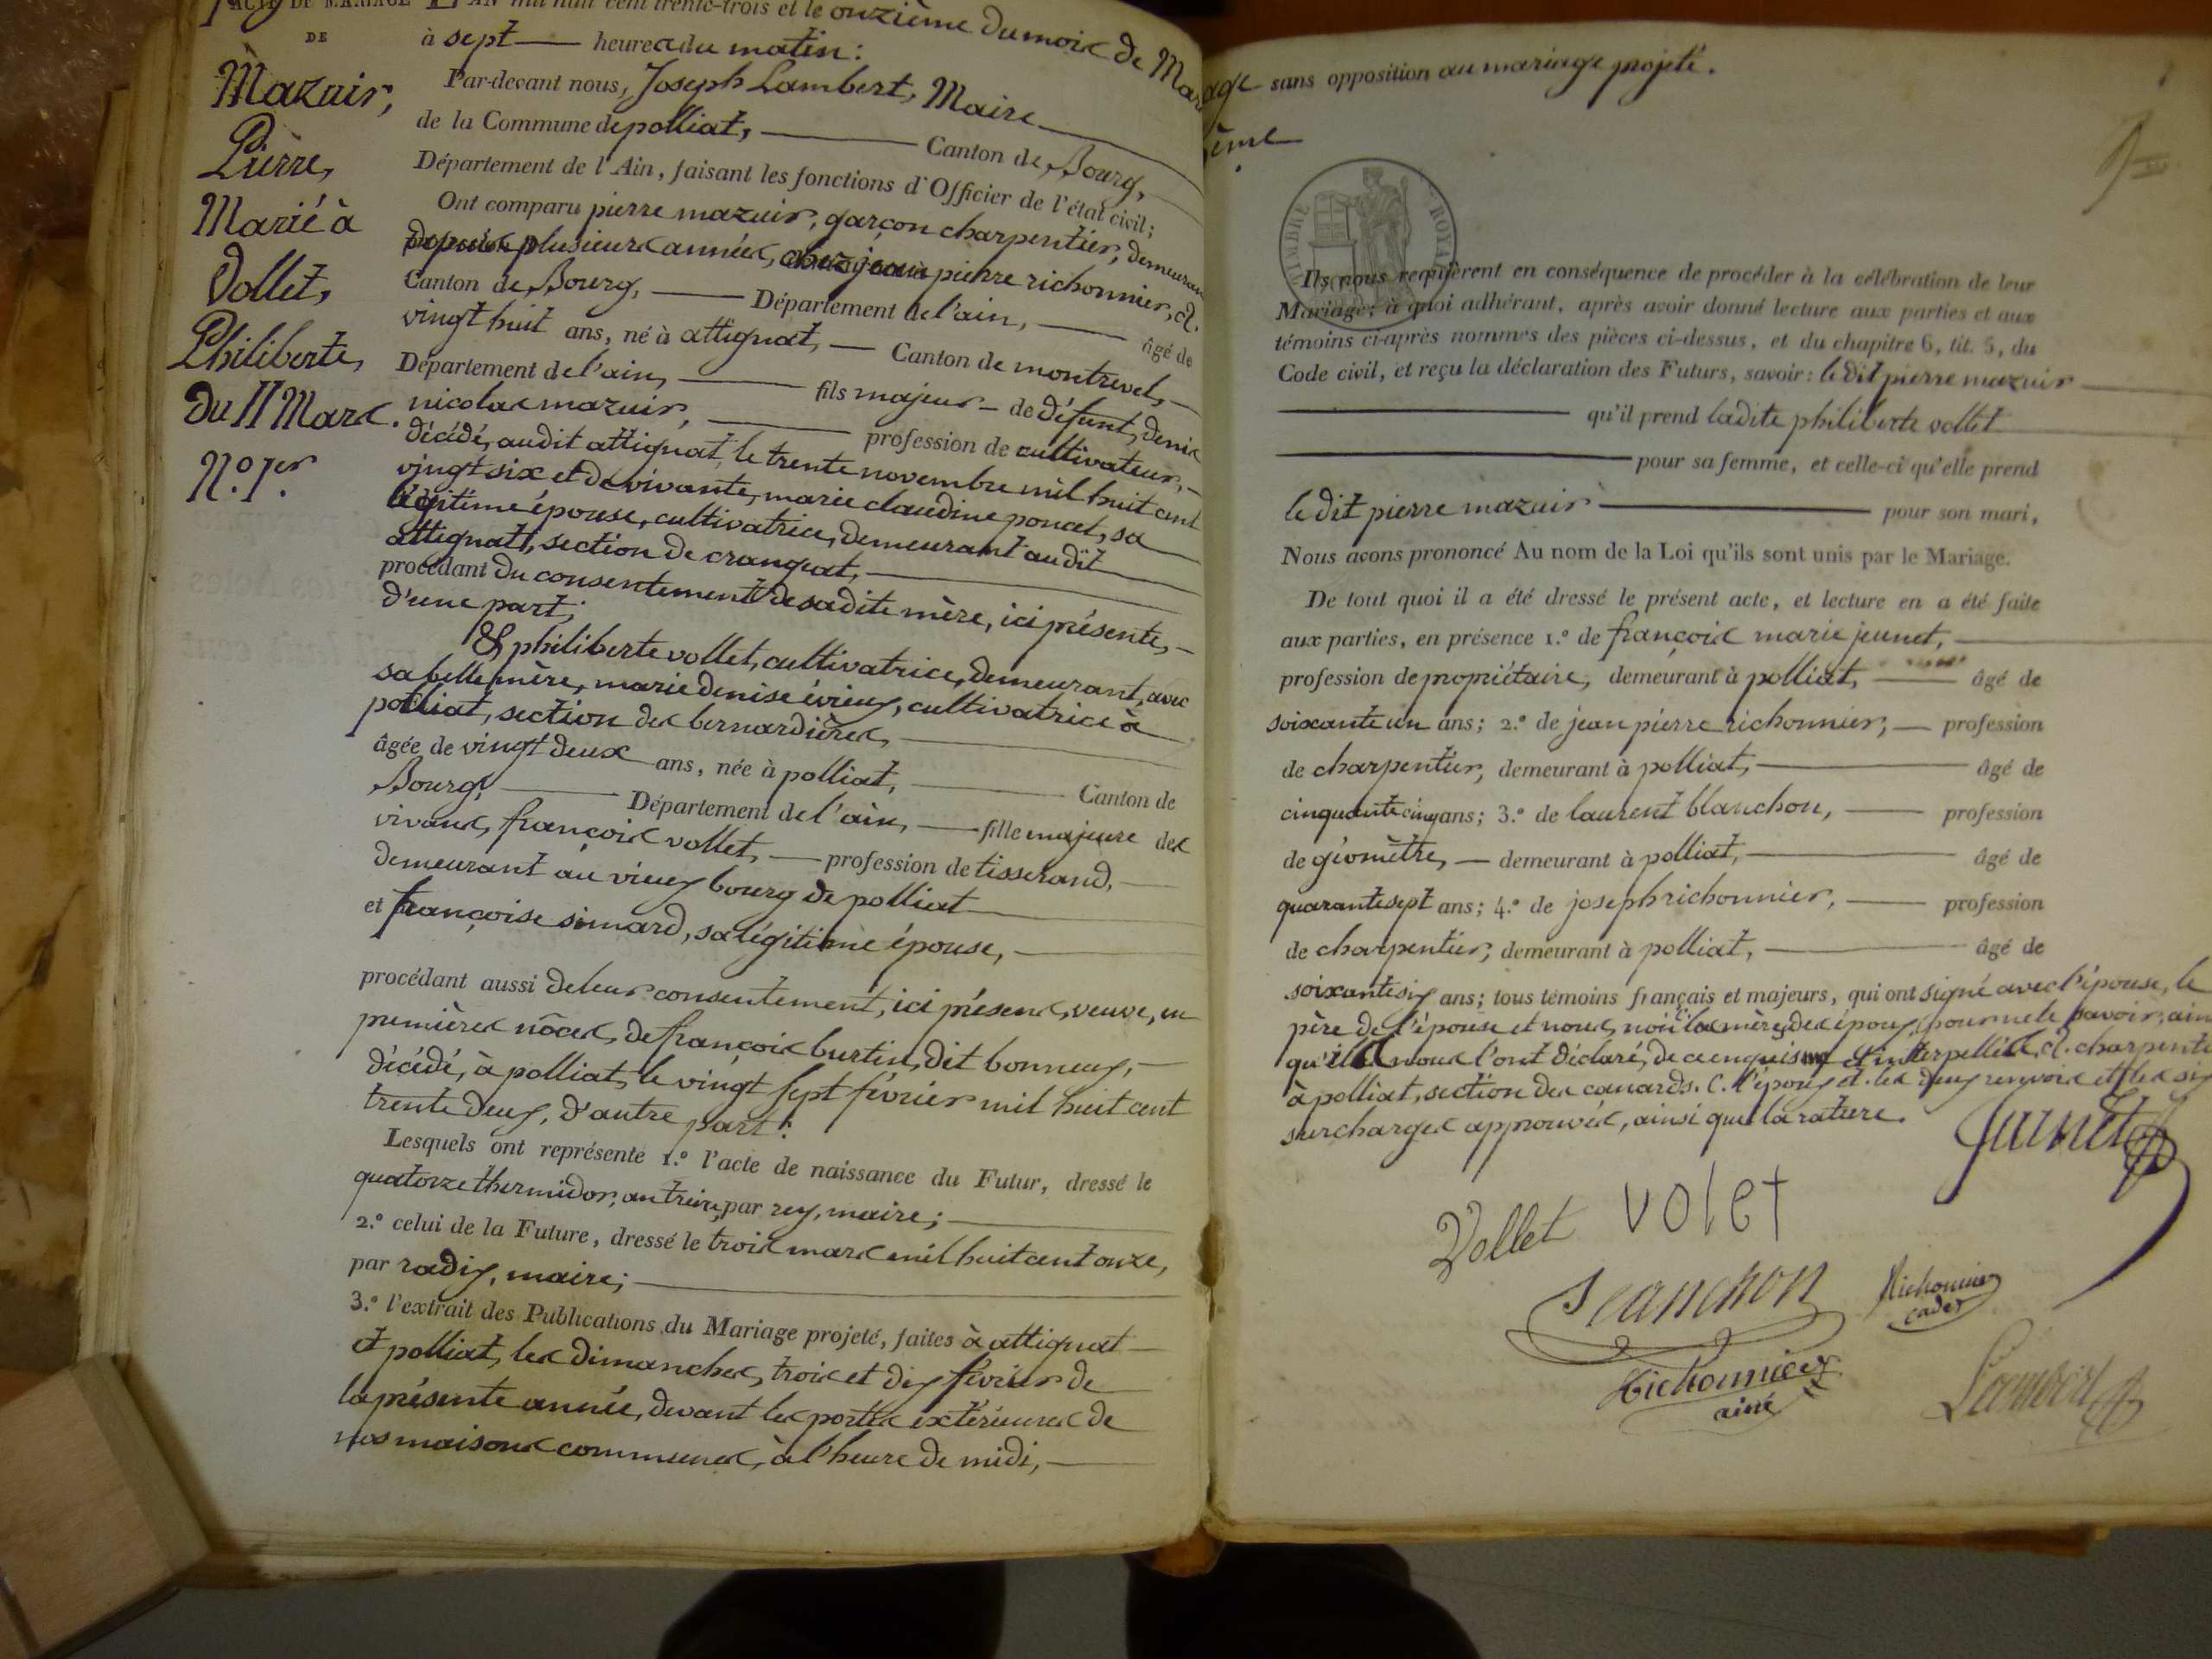 ACTE DE MARIAGE
DE
Mazuir,
Pierre,
Marié à
Vollet,
Philiberte,
du 11 Mars.
N.º 1.er
L'AN mil huit cent trente-trois et le onzième du mois de Mars
à sept heures du matin:
Par-devant nous, Joseph Lambert, Maire
de la Commune de polliat, Canton de Bourg,
Département de l'Ain, faisant les fonctions d'Officier de l'état civil;
Ont comparu pierre mazuir, garçon charpentier, demeurant
depuis plusieurs années, chez jean pierre richonnier, d.
Canton de Bourg, Département de l'ain, âgé de
vingt huit ans, né à attignat, Canton de montrevel,
Département de l'ain, fils majeur de défunt, denis
nicolas mazuir, profession de cultivateur,
décédé, audit attignat, le trente novembre mil huit cent
vingt six et de vivante, marie claudine poncet, sa
légitime épouse, cultivatrice, demeurant au dit
attignat, section de cranguat,
procédant du consentement de sadite mère, ici présente,
d'une part;
Et philiberte vollet, cultivatrice, demeurant, avec
sa belle mère, marie denise évieux, cultivatrice à
polliat, section des bernardières,
âgée de vingt deux ans, née à polliat, Canton de
Bourg, Département de l'ain, fille majeure des
vivans, françois vollet, profession de tisserand,
demeurant au vieux bourg de polliat
et françoise simard, sa légitime épouse,
procédant aussi de leur consentement, ici présens, veuve, en
premières nôces, de françois burtin, dit bonneux,
décédé, à polliat, le vingt sept février mil huit cent
trente deux, d'autre part:
Lesquels ont représenté 1.º l'acte de naissance du Futur, dressé le
quatorze thermidor, an treize, par rey, maire;
2.º celui de la Future, dressé le trois mars mil huit cent onze,
par radix, maire;
3.º l'extrait des Publications du Mariage projeté, faites à attignat
et polliat, les dimanches, trois et dix février de
la présente année, devant les portes extérieures de
nos maisons communes, à l'heure de midi,
sans opposition au mariage projeté.
TIMBRE ROYAL
Ils nous requièrent en conséquence de procéder à la célébration de leur
Mariage; à quoi adhérant, après avoir donné lecture aux parties et aux
témoins ci-après nommés des pièces ci-dessus, et du chapitre 6, tit. 5, du
Code civil, et reçu la déclaration des Futurs, savoir: le dit pierre mazuir
qu'il prend ladite philiberte vollet
pour sa femme, et celle-ci qu'elle prend
le dit pierre mazuir pour son mari,
Nous avons prononcé Au nom de la Loi qu'ils sont unis par le Mariage.
De tout quoi il a été dressé le présent acte, et lecture en a été faite
aux parties, en présence 1.º de françois marie jeunet,
profession de propriétaire, demeurant à polliat, âgé de
soixante un ans; 2.º de jean pierre richonnier, profession
de charpentier, demeurant à polliat, âgé de
cinquante cinq ans; 3.º de laurent blanchon, profession
de géomètre, demeurant à polliat, âgé de
quarante sept ans; 4.º de joseph richonnier, profession
de charpentier, demeurant à polliat, âgé de
soixante six ans; tous témoins français et majeurs, qui ont signé avec l'épouse, le
père de l'épouse et nous, non les mères des époux, pour ne le savoir, ainsi
qu'ils nous l'ont déclaré, de ce enquis et interpellés, d. charpentier
à polliat, section des canards. C. l'époux et les deux renvois et les six
surcharges approuvés, ainsi que la rature.
Jeunet
Vollet volet
Blanchon
Richonnier
cadet
Richonnier
ainé
Lambert